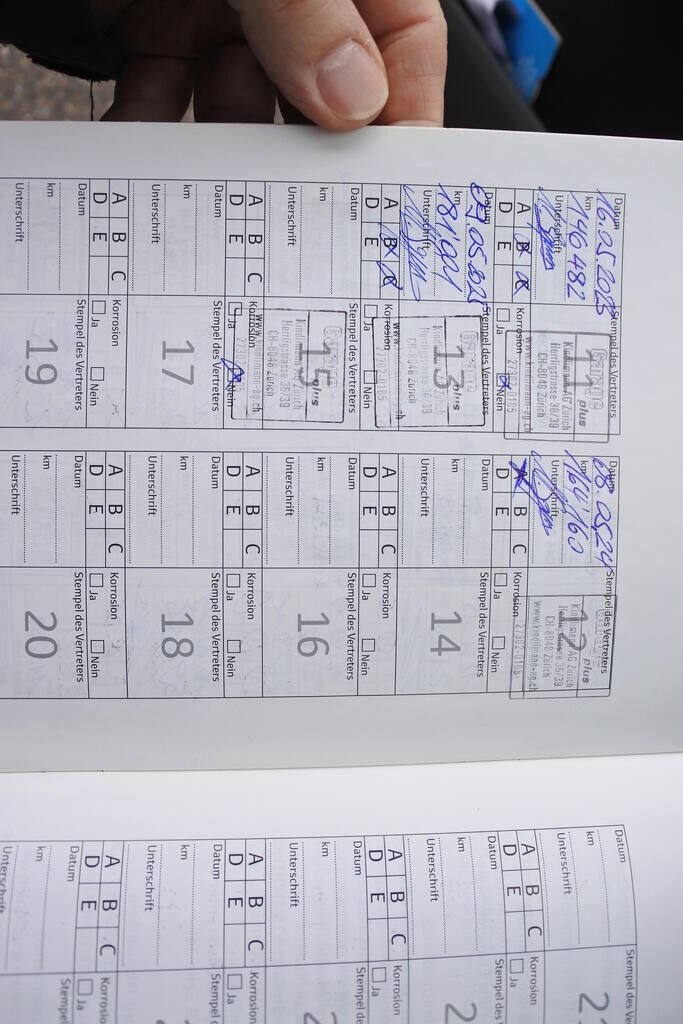 Datum Stempel des Vertreters
16.05.2023
km
146 482
Unterschrift
11
Garage plus
Kindlimann AG Zürich
Herrligstrasse 36/39
CH-8048 Zürich
27392-0105
www.kindlimann-ag.ch
A B C Korrosion
D E Ja Nein
Datum Stempel des Vertreters
08.05.24
km
164'160
Unterschrift
12
Garage plus
Kindlimann AG Zürich
Herrligstrasse 36/39
CH-8048 Zürich
27392-0105
www.kindlimann-ag.ch
A B C Korrosion
D E Ja Nein
Datum Stempel des Vertreters
05.2025
km
181'021
Unterschrift
13
plus
CH-8048 Zürich
A B C Korrosion
D E Ja Nein
Datum Stempel des Vertreters
km
Unterschrift
14
A B C Korrosion
D E Ja Nein
Datum Stempel des Vertreters
km
Unterschrift
plus
Herrligstrasse 36/39
CH-8048 Zürich
www.kindlimann-ag.ch
A B C Korrosion
D E Ja Nein
Datum Stempel des Vertreters
km
Unterschrift
16
A B C Korrosion
D E Ja Nein
Datum Stempel des Vertreters
km
Unterschrift
17
A B C Korrosion
D E Ja Nein
Datum Stempel des Vertreters
km
Unterschrift
18
A B C Korrosion
D E Ja Nein
Datum Stempel des Vertreters
km
Unterschrift
19
Datum Stempel des Vertreters
km
Unterschrift
20
Datum Stempel des V
km
Unterschrift
A B C Korrosion
D E Ja
Datum Stempel des
km
Unterschrift
A B C Korrosion
D E Ja
Datum Stempel de
km
Unterschrift
A B C Korrosion
D E Ja
Datum Stempel d
km
Unterschrift
A B C Korrosion
D E Ja
Datum Stempel
km
Unterschrift